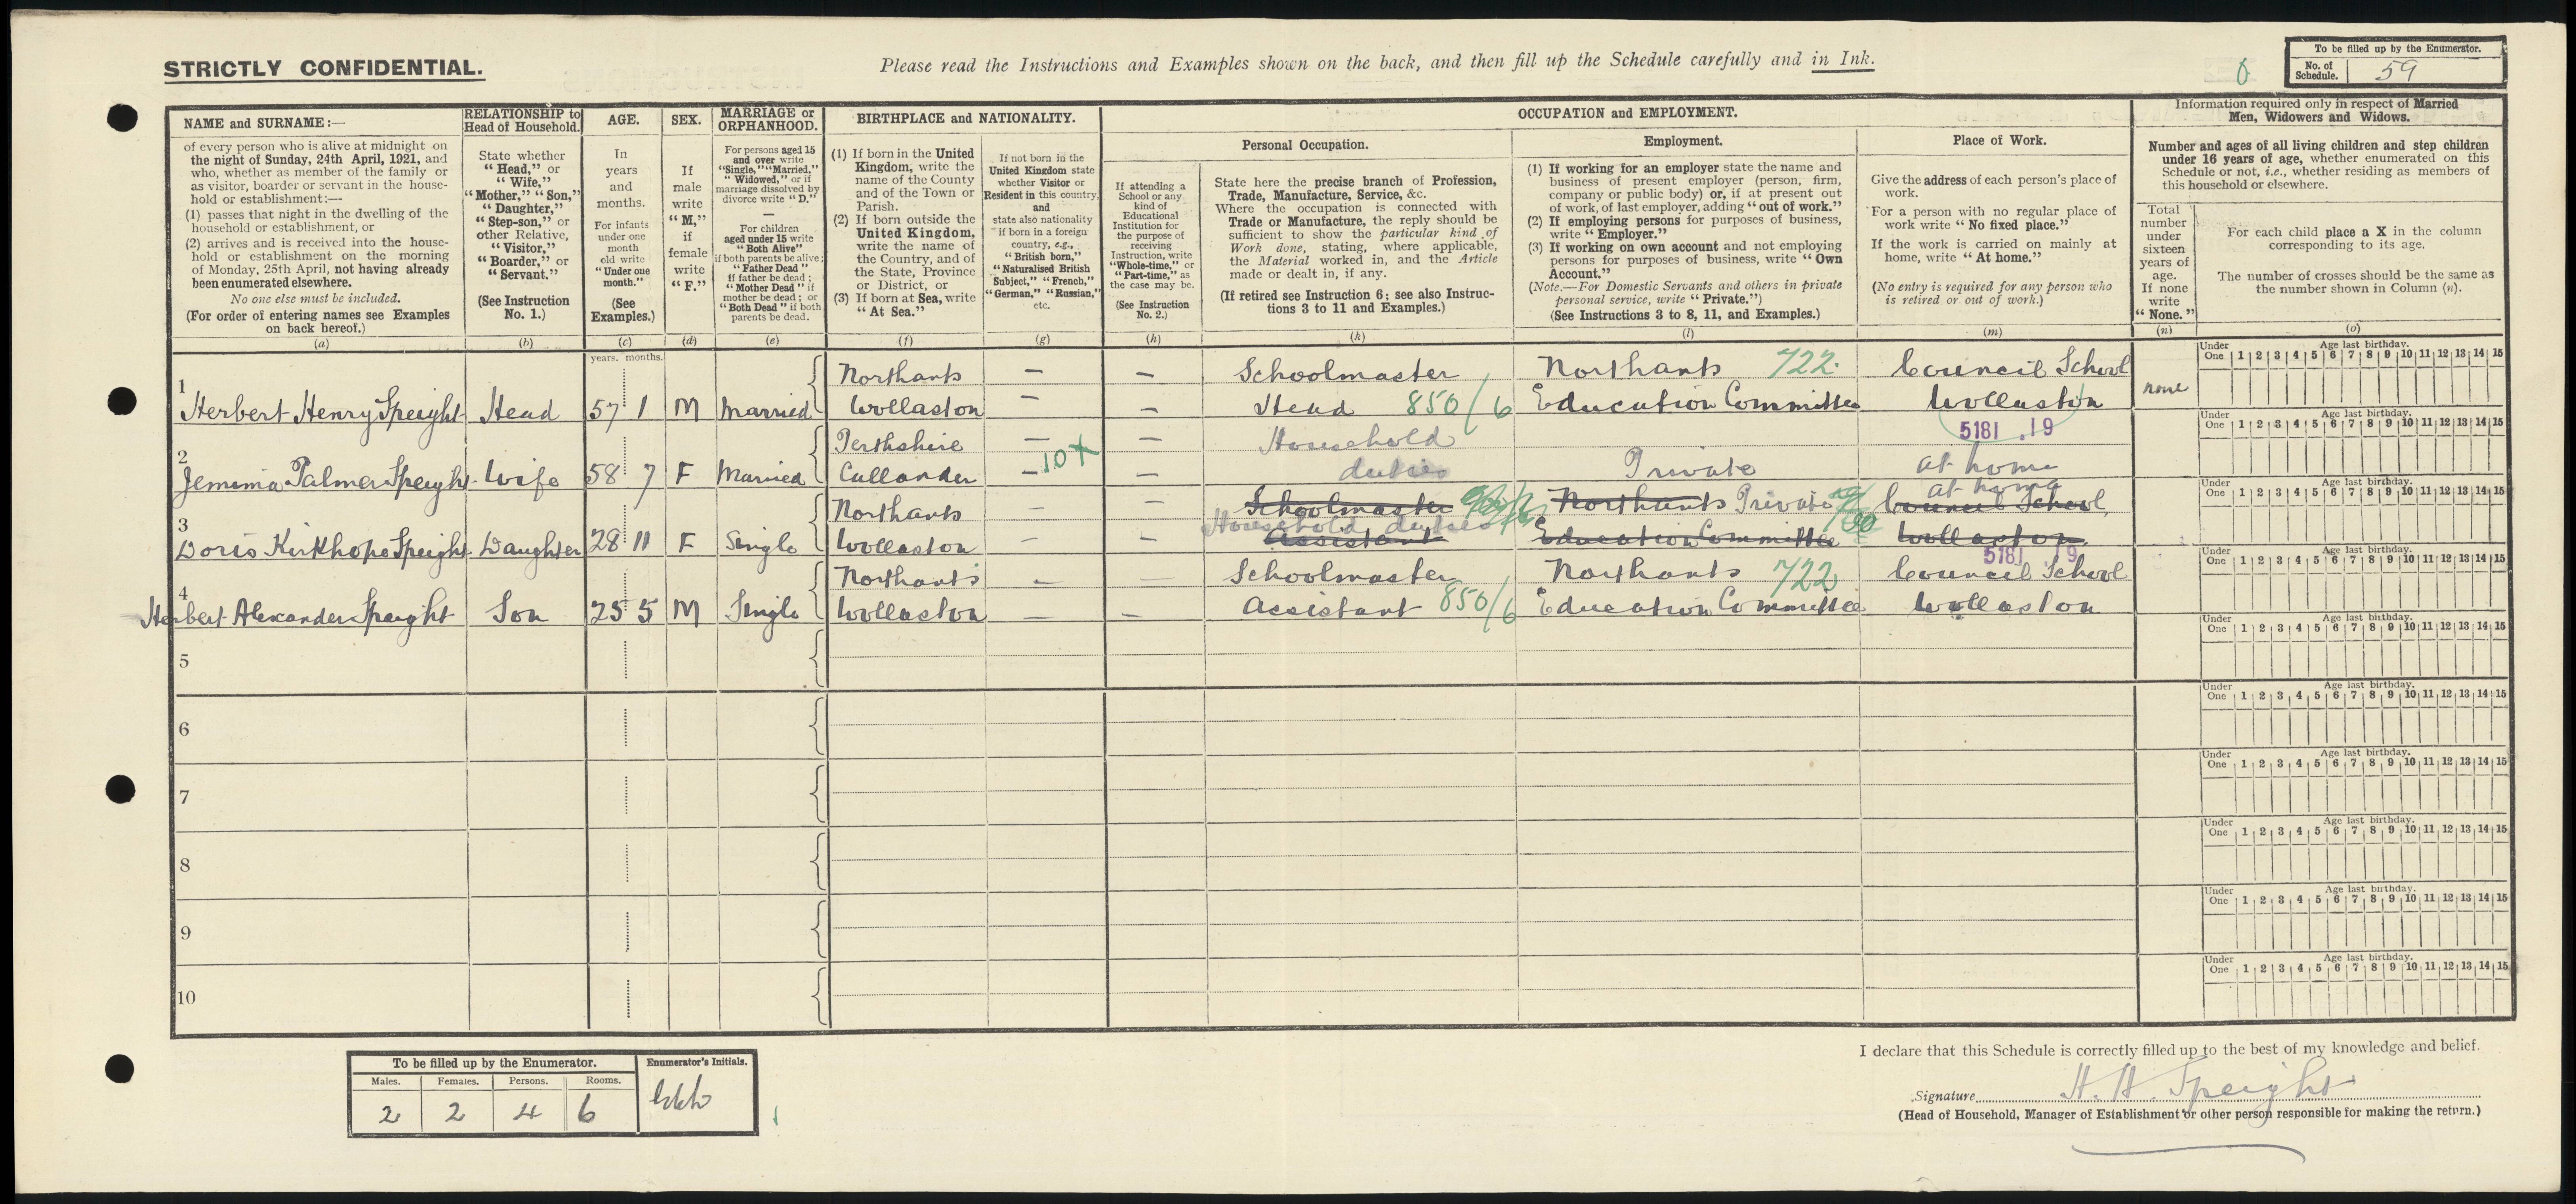 STRICTLY CONFIDENTIAL.
Please read the Instructions and Examples shown on the back, and then fill up the Schedule carefully and in Ink.
To be filled up by the Enumerator.
No. of Schedule. 59
NAME and SURNAME:—
of every person who is alive at midnight on
the night of Sunday, 24th April, 1921, and
who, whether as member of the family or
as visitor, boarder or servant in the house-
hold or establishment:—
(1) passes that night in the dwelling of the
household or establishment, or
(2) arrives and is received into the house-
hold or establishment on the morning
of Monday, 25th April, not having already
been enumerated elsewhere.
No one else must be included.
(For order of entering names see Examples
on back hereof.)
(a)
RELATIONSHIP to
Head of Household.
State whether
"Head," or
"Wife,"
"Mother," "Son,"
"Daughter,"
"Step-son," or
other Relative,
"Visitor,"
"Boarder," or
"Servant."
(See Instruction
No. 1.)
(b)
AGE.
In
years
and
months.
For infants
under one
month
old write
"Under one
month."
(See
Examples.)
(c)
SEX.
If
male
write
"M,"
if
female
write
"F."
(d)
MARRIAGE or
ORPHANHOOD.
For persons aged 15
and over write
"Single," "Married,"
"Widowed," or if
marriage dissolved by
divorce write "D."
—
For children
aged under 15 write
"Both Alive"
if both parents be alive;
"Father Dead"
if father be dead;
"Mother Dead" if
mother be dead; or
"Both Dead" if both
parents be dead.
(e)
BIRTHPLACE and NATIONALITY.
(1) If born in the United
Kingdom, write the
name of the County
and of the Town or
Parish.
(2) If born outside the
United Kingdom,
write the name of
the Country, and of
the State, Province
or District, or
(3) If born at Sea, write
"At Sea."
(f)
If not born in the
United Kingdom state
whether Visitor or
Resident in this country,
and
state also nationality
if born in a foreign
country, e.g.,
"British born,"
"Naturalised British
Subject," "French,"
"German," "Russian,"
etc.
(g)
OCCUPATION and EMPLOYMENT.
If attending a
School or any
kind of
Educational
Institution for
the purpose of
receiving
Instruction, write
"Whole-time," or
"Part-time," as
the case may be.
(See Instruction
No. 2.)
(h)
Personal Occupation.
State here the precise branch of Profession,
Trade, Manufacture, Service, &c.
Where the occupation is connected with
Trade or Manufacture, the reply should be
sufficient to show the particular kind of
Work done, stating, where applicable,
the Material worked in, and the Article
made or dealt in, if any.
(If retired see Instruction 6; see also Instruc-
tions 3 to 11 and Examples.)
(k)
Employment.
(1) If working for an employer state the name and
business of present employer (person, firm,
company or public body) or, if at present out
of work, of last employer, adding "out of work."
(2) If employing persons for purposes of business,
write "Employer."
(3) If working on own account and not employing
persons for purposes of business, write "Own
Account."
(Note.—For Domestic Servants and others in private
personal service, write "Private.")
(See Instructions 3 to 8, 11, and Examples.)
(l)
Place of Work.
Give the address of each person's place of
work.
For a person with no regular place of
work write "No fixed place."
If the work is carried on mainly at
home, write "At home."
(No entry is required for any person who
is retired or out of work.)
(m)
Information required only in respect of Married
Men, Widowers and Widows.
Number and ages of all living children and step children
under 16 years of age, whether enumerated on this
Schedule or not, i.e., whether residing as members of
this household or elsewhere.
Total
number
under
sixteen
years of
age.
If none
write
"None."
(n)
For each child place a X in the column
corresponding to its age.
The number of crosses should be the same as
the number shown in Column (n).
(o)
years. months.
Under One Age last birthday. 1 2 3 4 5 6 7 8 9 10 11 12 13 14 15
Northants — — Schoolmaster Northants 722. Council School
1 Herbert Henry Speight Head 57 1 M Married Wollaston — — Head 850/6 Education Committee Wollaston none
Under One Age last birthday. 1 2 3 4 5 6 7 8 9 10 11 12 13 14 15
Perthshire — — Household 5181 .19
2 Jemima Palmer Speight Wife 58 7 F Married Callander — 10+ — duties Private at home
Under One Age last birthday. 1 2 3 4 5 6 7 8 9 10 11 12 13 14 15
Northants — — Schoolmaster Northants Private at home Council School
Household duties
3 Doris Kirkhope Speight Daughter 28 11 F Single Wollaston — — Assistant Education Committee Wollaston
Under One Age last birthday. 1 2 3 4 5 6 7 8 9 10 11 12 13 14 15
5181 19
Northants — — Schoolmaster Northants 722 Council School
4 Herbert Alexander Speight Son 25 5 M Single Wollaston — — Assistant 850/6 Education Committee Wollaston
5 Under One Age last birthday. 1 2 3 4 5 6 7 8 9 10 11 12 13 14 15
6 Under One Age last birthday. 1 2 3 4 5 6 7 8 9 10 11 12 13 14 15
7 Under One Age last birthday. 1 2 3 4 5 6 7 8 9 10 11 12 13 14 15
8 Under One Age last birthday. 1 2 3 4 5 6 7 8 9 10 11 12 13 14 15
9 Under One Age last birthday. 1 2 3 4 5 6 7 8 9 10 11 12 13 14 15
10 Under One Age last birthday. 1 2 3 4 5 6 7 8 9 10 11 12 13 14 15
To be filled up by the Enumerator. Enumerator's Initials.
Males. Females. Persons. Rooms.
2 2 4 6
I declare that this Schedule is correctly filled up to the best of my knowledge and belief.
Signature H. H. Speight
(Head of Household, Manager of Establishment or other person responsible for making the return.)